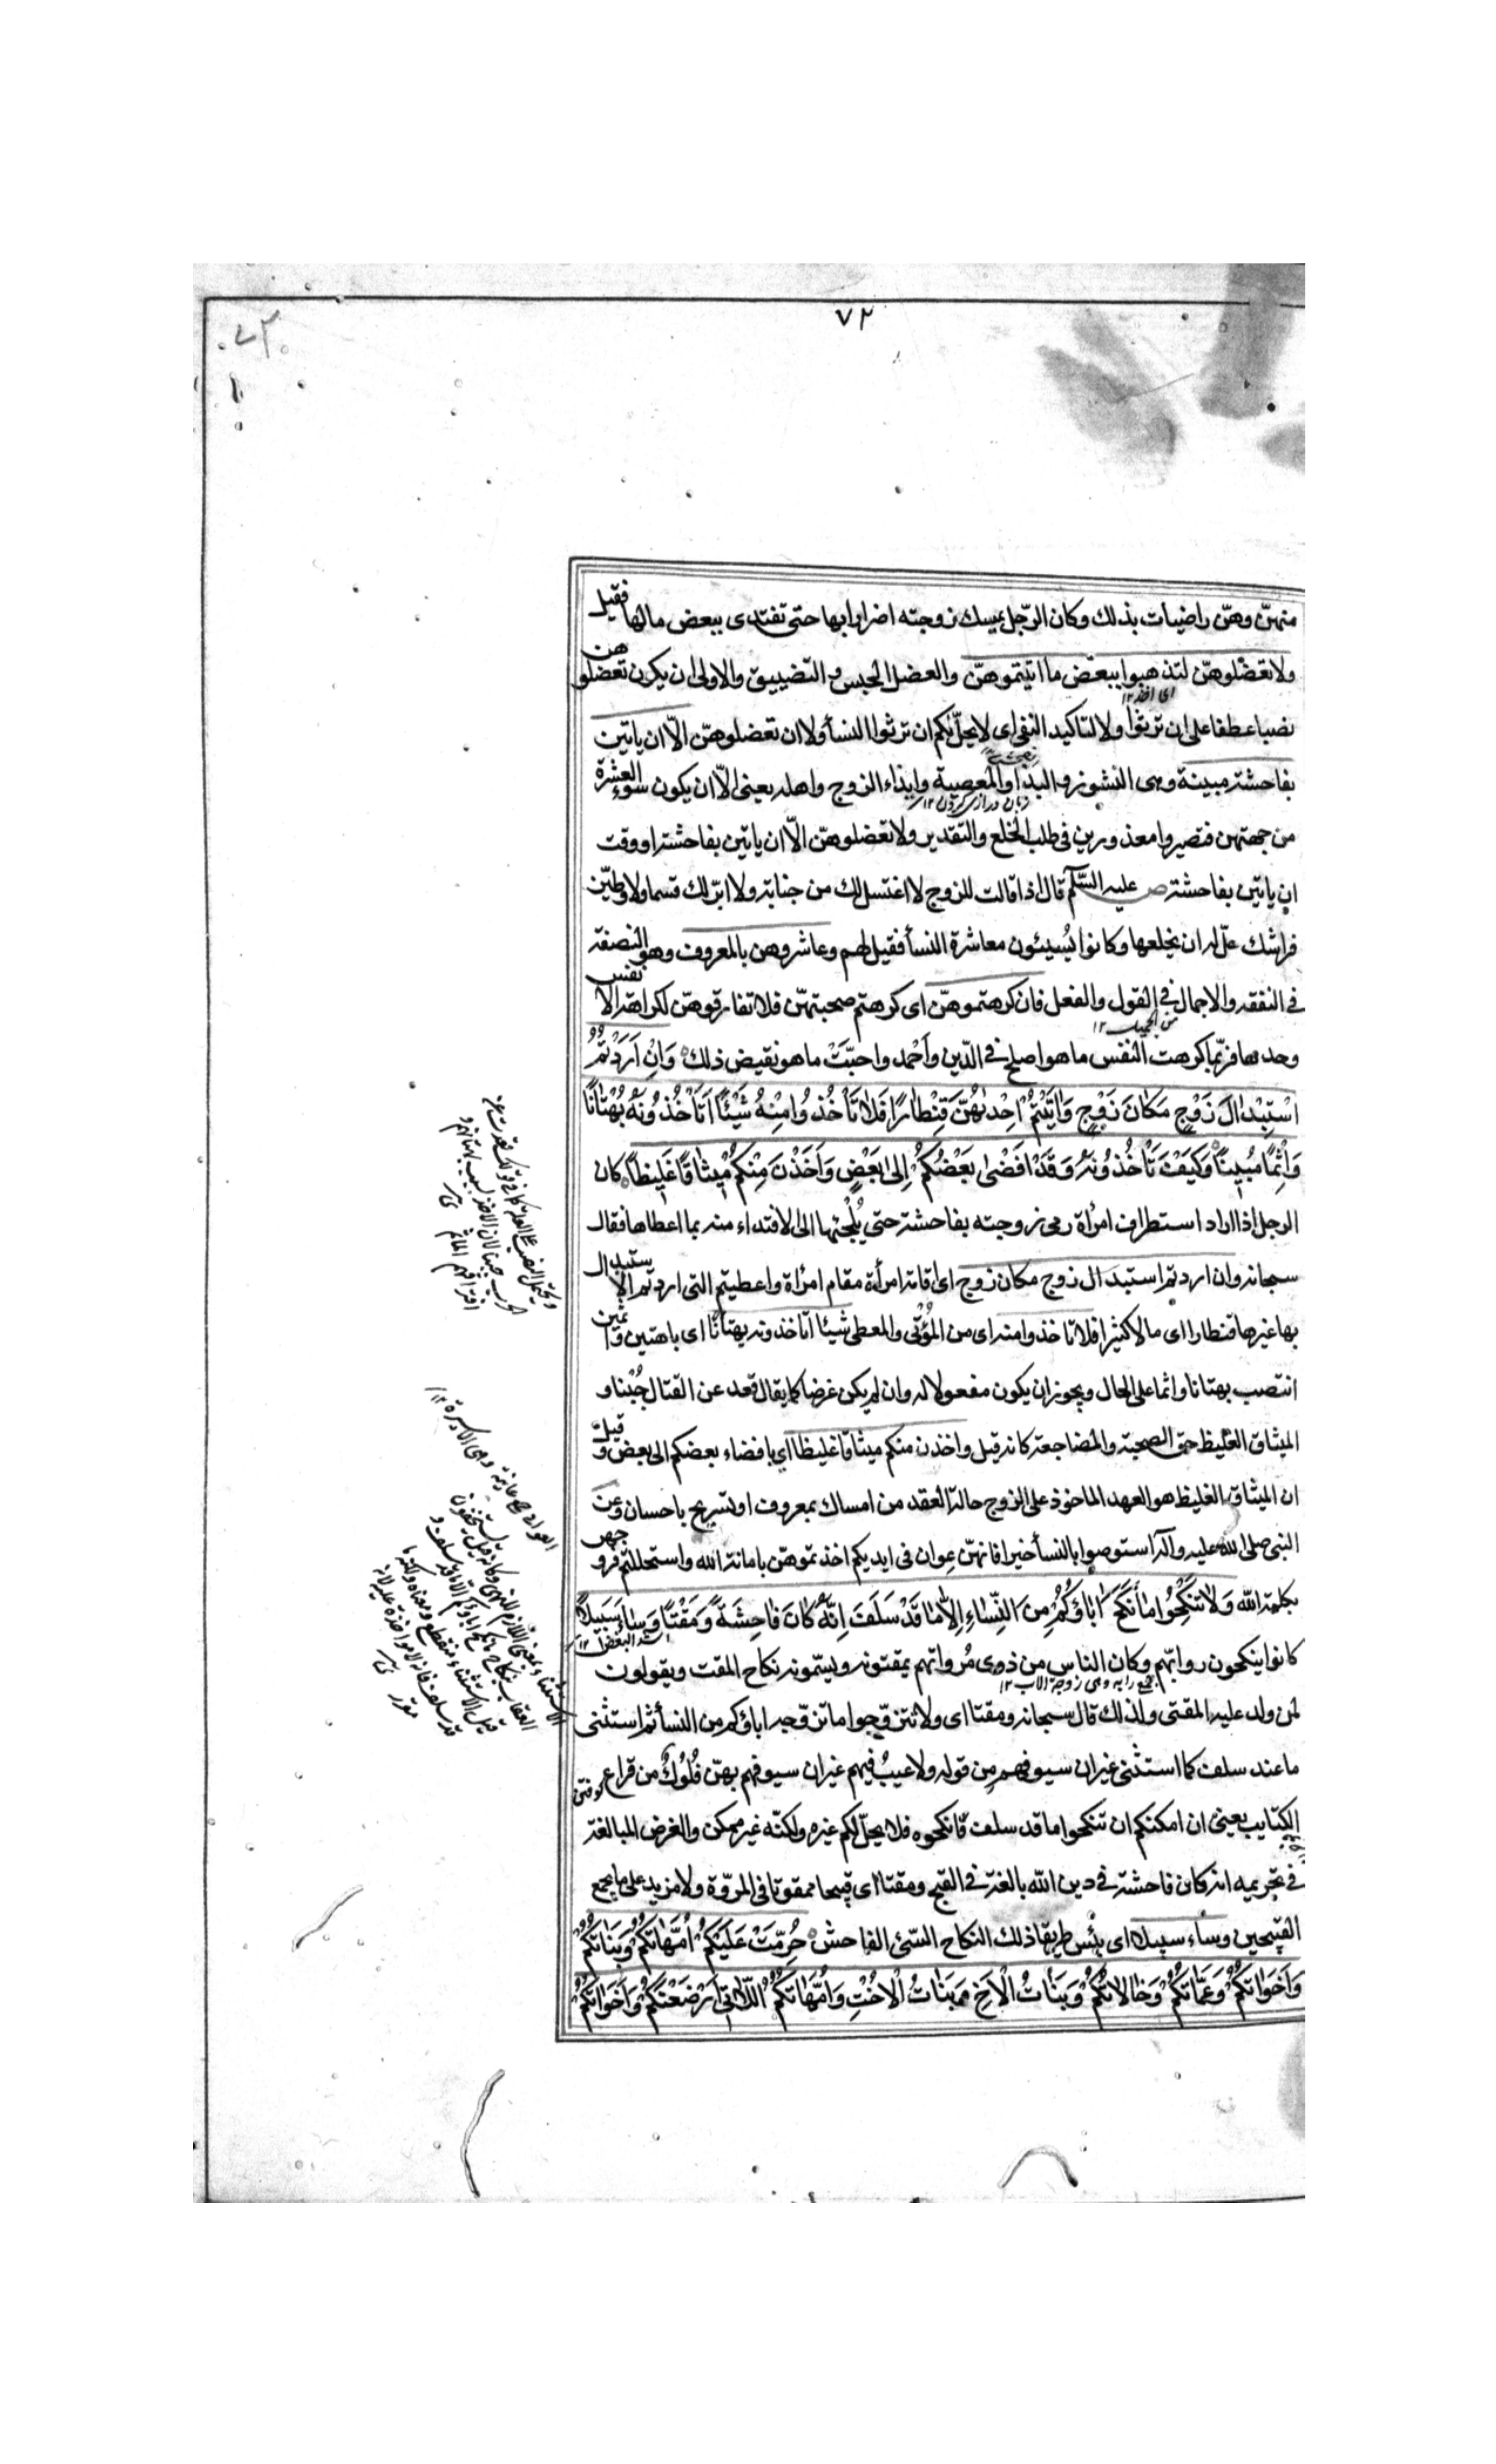 ٧٢
٧٢
منهنّ وهنّ راضيات بذلك وكان الرّجل يمسك زوجته اضرارا بها حتى تفتدى ببعض مالها فقيل
ولا تعضلوهنّ لتذهبوا ببعض ما اتيتموهنّ والعضل الحبس و التضييق والاولى ان يكون تعضلوهن
اى اخذ ١٢
نصبا عطفا على ان ترثوا ولا لتاكيد النفى اى لا يحلّ لكم ان ترثوا النسأ ولا ان تعضلوهنّ الّا ان ياتين
بفاحشة مبينة وهى النشوز و البذا والمعصية وايذاء الزوج واهله يعنى الّا ان يكون سوء العشرة
زبان درازى كردن ١٢
من جهتهن فتصيروا معذورين فى طلب الخلع والتقدير ولا تعضلوهنّ الّا ان ياتين بفاحشة او وقت
ان ياتين بفاحشة ص عليه السّلم قال اذا قالت للزوج لا اغتسل لك من جنابة ولا ابرّ لك قسما ولاوطيّن
فراشك حلّ له ان يخلعها وكانوا يُسيئون معاشرة النسأ فقيل لهم وعاشروهن بالمعروف وهو النصفة
فى النفقه والاجمال فى القول والفعل فان كرهتموهنّ اى كرهتم صحبتهنّ فلا تفارقوهنّ لكراهة الانفس
وحدها فربّما كرهت النفس ما هو اصلح فى الدّين وأحمد واحبّت ما هو نقيض ذلك وَاِنْ اَرَدْتُمُ
اسْتِبْدالَ زَوْجٍ مَكانَ زَوْجٍ وَاتَيْتُمْ اِحْدٰيهُنَّ قِنْطارًا فَلا تَأْخُذُوا مِنْهُ شَيْئًا اَتَأْخُذُونَهُ بُهْتانًا
وَاِثْمًا مُبينًا وَكَيْفَ تَأْخُذُونَهُ وَقَدْ اَفْضٰى بَعْضُكُمْ اِلى بَعْضٍ وَاَخَذْنَ مِنْكُمْ ميثاقًا غَليظًا كان
الرجل اذا اراد استطراف امرأة رمى زوجته بفاحشة حتى يُلجئها الى الافتداء منه بما اعطاها فقال
سبحانه وان اردتم استبدال زوج مكان زوج اى اقامة امرأة مقام امرأة واعطيتم التى اردتم الاستبدال
بها غيرها قنطارا اى مالا كثيرا فلا تاخذوا منه اى من المُؤتى والمعطى شيئا اتاخذونه بهتانًا اى باهتين وآثمين
انتصب بهتانا واثما على الحال ويجوز ان يكون مفعولا له وان لم يكن غرضا كما يقال قعد عن القتال جُبْنا و
الميثاق الغليظ حق الصحبة والمضاجعة كانه قيل واخذن منكم ميثاقا غليظا اى بافضاء بعضكم الى بعض وقيل
ان الميثاق الغليظ هو العهد الماخوذ على الزوج حالة العقد من امساك بمعروف او تسريح باحسان وعن
النبى صلى الله عليه وآله استوصوا بالنسأ خيرا فانهنّ عوان فى ايديكم اخذتموهنّ بامانة الله واستحللتم فروجهن
بكلمة الله وَلا تَنْكِحُوا ما نَكَحَ اباؤُكُمْ مِنَ النِّساءِ اِلّا ما قَدْ سَلَفَ اِنَّهُ كانَ فاحِشَةً وَمَقْتًا وَساءَ سَبيلًا
اشد البغض ١٢
كانوا ينكحون روابّهم وكان الناس من ذوى مُرواتهم يمقتونه ويسمّونه نكاح المقت ويقولون
جمع رابه وهى زوجة الاب ١٢
لمن ولد عليه المقتى ولذلك قال سبحانه ومقتا اى ولا تتزوّجوا ما تزوّجه اباؤكم من النسأ ثم استثنى
ما عند سلف كما استثنى غير ان سيوفهم من قوله ولا عيبُ فيهم غير ان سيوفهم بهنّ فُلُولٌ من قراع
الكتايب يعنى ان امكنكم ان تنكحوا ما قد سلف فانكحوه فلا يحلّ لكم غيره ولكنّه غير ممكن والغرض المبالغة
فى تحريمه انه كان فاحشة فى دين الله بالغة فى القبح ومقتا اى قبيحا ممقوتا فى المروّة ولا مزيد على ما يجمع
القبحين وساء سبيلا اى بئس طريقا ذلك النكاح السّئ الفاحش حُرِّمَتْ عَلَيْكُمْ اُمَّهاتُكُمْ وَبَناتُكُمْ
وَاَخَواتُكُمْ وَعَمّاتُكُمْ وَخالاتُكُمْ وَبَناتُ الْاَخِ وَبَناتُ الْاُخْتِ وَاُمَّهاتُكُمُ اللّاتى اَرْضَعْنَكُمْ وَاَخَواتُكُمْ